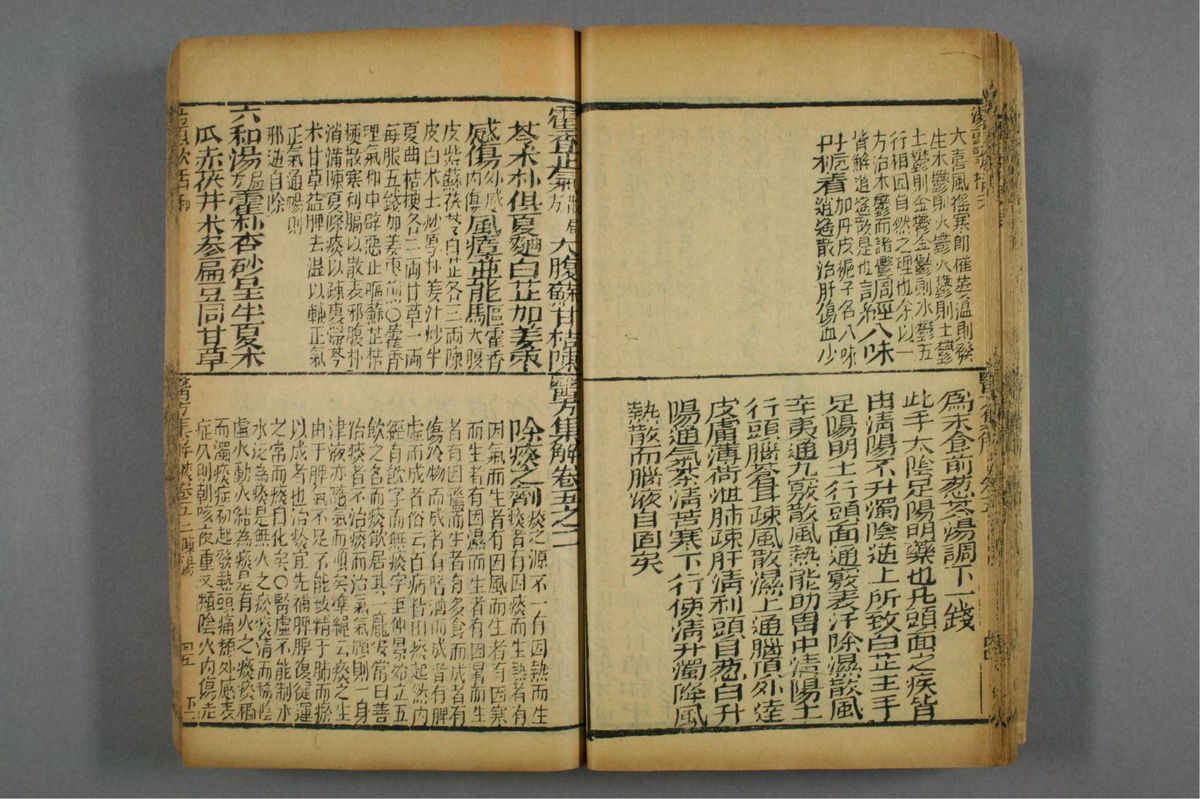 生木鬱則火鬱火鬱則土鬱
土鬱則金鬱金鬱則水鬱五
行相因自然之理也余以一
方治木鬱而諸鬱
皆解逍遙散是也
八味
加丹皮梔子名八味
逍遙散治肝傷血少
為末食前葱茶湯調下一錢
此手太陰足陽明藥也凡頭面之疾皆
由清陽不升濁陰逆上所致白芷主手
足陽明上行頭面通竅表汗除濕散風
辛夷通九竅散風熱能助胃中清陽上
行頭腦蒼耳疎風散濕上通腦頂外達
皮膚薄荷泄肺疎肝清利頭目葱白升
陽通氣茶清苦寒下行使清升濁降風
熱散而腦液自固矣
藿香正氣方大腹蘇甘桔陳
苓朮朴俱夏麯白芷加姜棗
感傷外感內傷風瘴並能驅藿香大腹
皮紫蘇茯苓白芷各三兩陳
皮白朮土炒厚朴姜汁炒半
夏曲桔梗各二兩甘草一兩
每服五錢加姜棗煎○藿香
理氣和中辟惡止嘔蘇芷桔
梗散寒利膈以散表邪腹朴
消滿陳夏除痰以疎裏滯苓
朮甘草益脾去濕以輔正氣
正氣通暢則
邪逆自除
六和湯方藿朴杏砂呈半夏木
瓜赤茯并朮參扁豆同甘草
醫方集解卷五之二
除痰之劑痰之源不一有因熱而生
痰者有因痰而生熱者有
因氣而生者有因風而生者有因寒
而生者有因濕而生者有因暑而生
者有因驚而生者有多食而成者有
傷冷物而成者有嗜酒而成者有脾
虛而成者俗云百病皆由痰起然內
經有飲字而無痰字至仲景始立五
飲之名而痰飲居其一龐安常曰善
治痰者不治痰而治氣氣順則一身
津液亦隨氣而順矣準繩云痰之生
由于脾氣不足不能致精于肺而瘀
以成者也治痰宜先補脾脾復健運
之常而痰自化矣○腎虛不能制水
水泛為痰是無火之痰痰清而稀陰
虛火動火結為痰是有火之痰痰稠
而濁痰症初起發熱頭痛類外感表
症久則朝咳夜重又類陰火內傷走